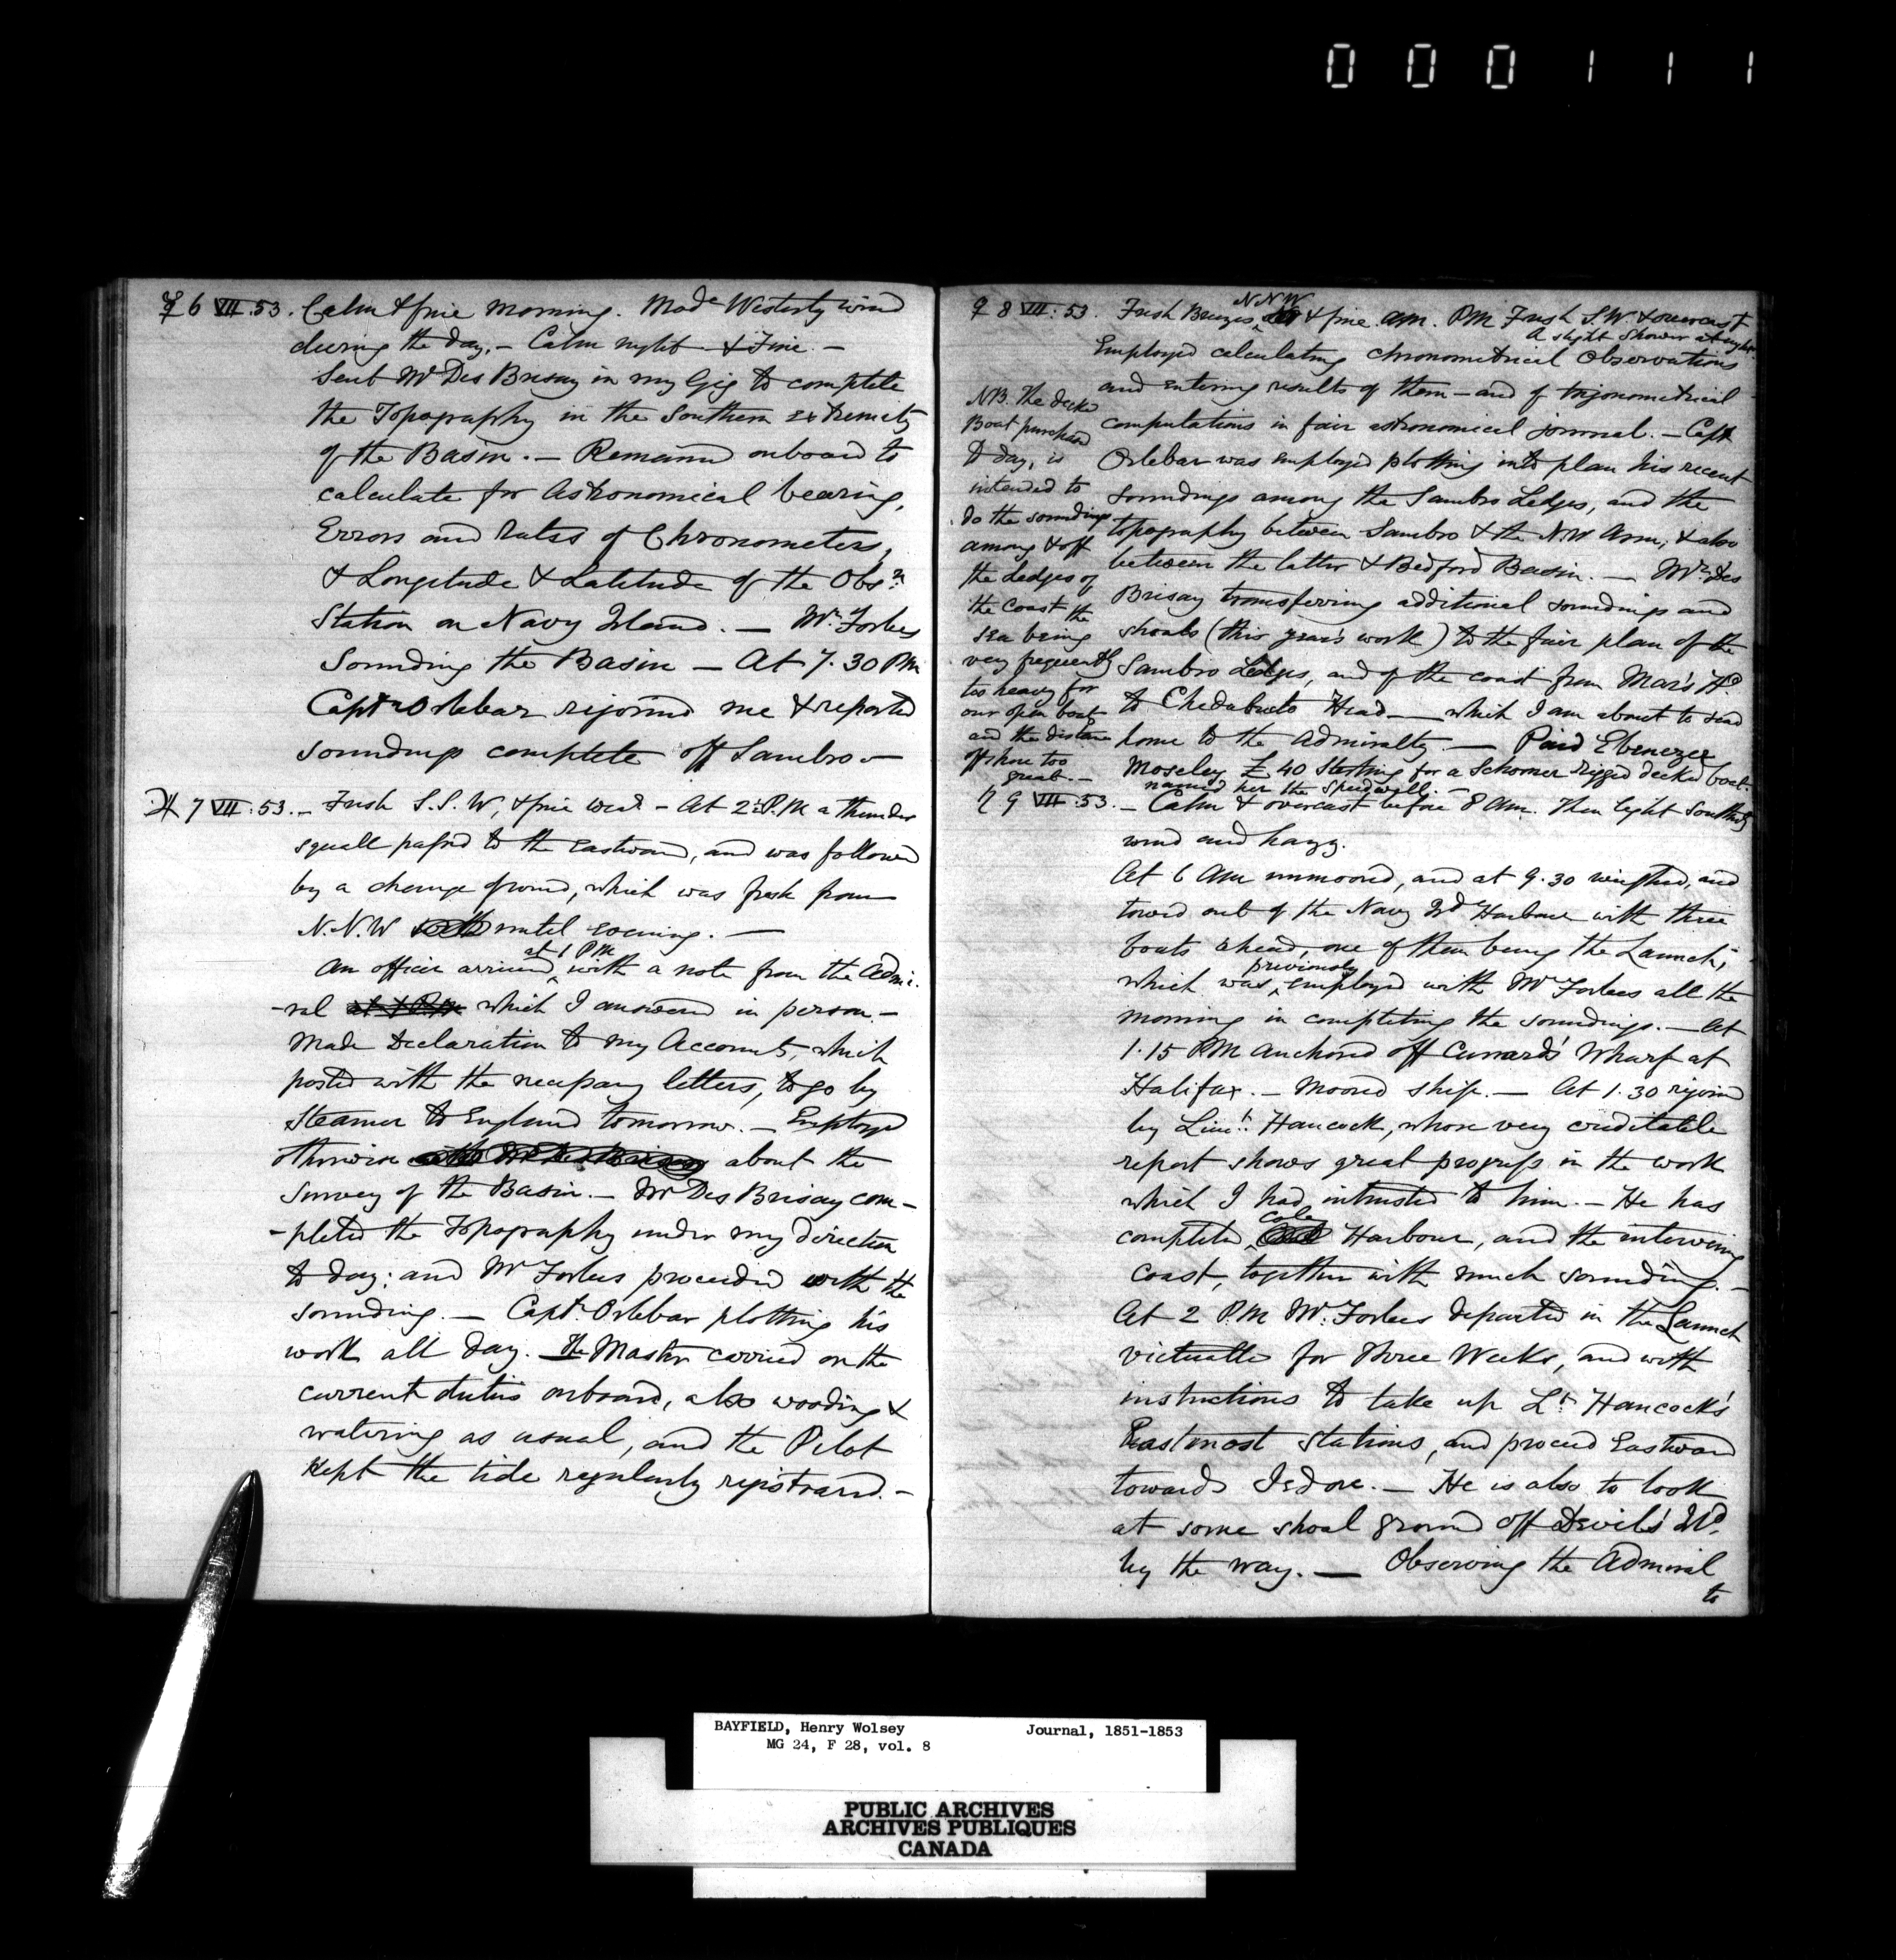 000111
☿ 6 VII. 53. Calm & fine morning. Mode Westerly wind
during the day. – Calm night & Fine. –
Sent Mr Des Brisay in my Gig to complete
the Topography in the Southern extremity
of the Basin. – Remained onboard to
calculate for Astronomical bearing,
Errors and Rates of Chronometers,
& Longitude & Latitude of the Obsn
Station on Navy Island. – Mr. Forbes
Sounding the Basin – At 7.30 PM
Captn Orlebar rejoined me & reported
soundings complete off Sambro –
♃ 7 VII: 53. – Fresh S.S.W, & fine wear – At 2 P.M a thunder
squall passed to the Eastward, and was followed
by a change of wind, which was fresh from
N.N.W until evening. –
at 1 PM
An officer arrived, with a note from the Admi-
-ral at 1 P.M which I answered in person. –
Made Declaration to my Accounts, which
posted with the necessary letters, to go by
Steamer to England tomorrow. – Employed
otherwise with Mr Des Brisay about the
Survey of the Basin. – Mr Des Brisay com-
-pleted the Topography under my direction
to day: and Mr Forbes proceeded with the
sounding. – Captn. Orlebar plotting his
work all day. The Master carried on the
current duties onboard, also wooding &
watering as usual, and the Pilot
kept the tide regularly registered. –
♀ 8 VII: 53. Fresh Breezes NNW & fine AM. PM Fresh S.W & overcast
A slight Shower at night.
Employed calculating chronometrical Observations
and entering results of them – and of trigonometrical
computations in fair astronomical journal. – Capt
Orlebar was employed plotting into plan his recent
soundings among the Sambro Ledges, and the
topography between Sambro & the N.W Arm, & also
between the latter & Bedford Basin. – Mr. Des
Brisay transferring additional soundings and
shoals (this year's work) to the fair plan of the
Sambro Ledges, and of the coast from Mar's Hd
to Chedabucto Head – which I am about to send
home to the Admiralty. – Paid Ebenezer
Moseley £ 40 Sterling for a Schooner rigged decked boat.
named her the Speedwell. –
NB. The decked
Boat purchased
to day, is
intended to
do the soundings
among & off
the Ledges of
the coast the
sea being
very frequently
too heavy for
our open boats
and the distance
offshore too
great. –
♄ 9 VII: 53. – Calm & overcast before 8 AM. Then light Southerly
wind and hazy.
At 6 AM unmoored, and at 9.30 weighed, and
towed out of the Navy Id Harbour with three
boats ahead, one of them being the Launch,
which was, previously employed with Mr Forbes all the
morning in completing the soundings. – At
1.15 PM anchored off Cunard's Wharf at
Halifax. – Moored ship. – At 1.30 rejoined
by Lieut. Hancock, whose very creditable
report shows great progress in the work
which I had intrusted to him. – He has
completed, Cole Harbour, and the intervening
coast, together with much sounding. –
At 2 P.M Mr. Forbes departed in the Launch
victualled for Three Weeks, and with
instructions to take up Lt. Hancock's
Eastmost Stations, and proceed Eastward
towards Jedore. – He is also to look
at some shoal ground off Devil's Id.
by the way. – Observing the Admiral
to
BAYFIELD, Henry Wolsey Journal, 1851-1853
MG 24, F 28, vol. 8
PUBLIC ARCHIVES
ARCHIVES PUBLIQUES
CANADA